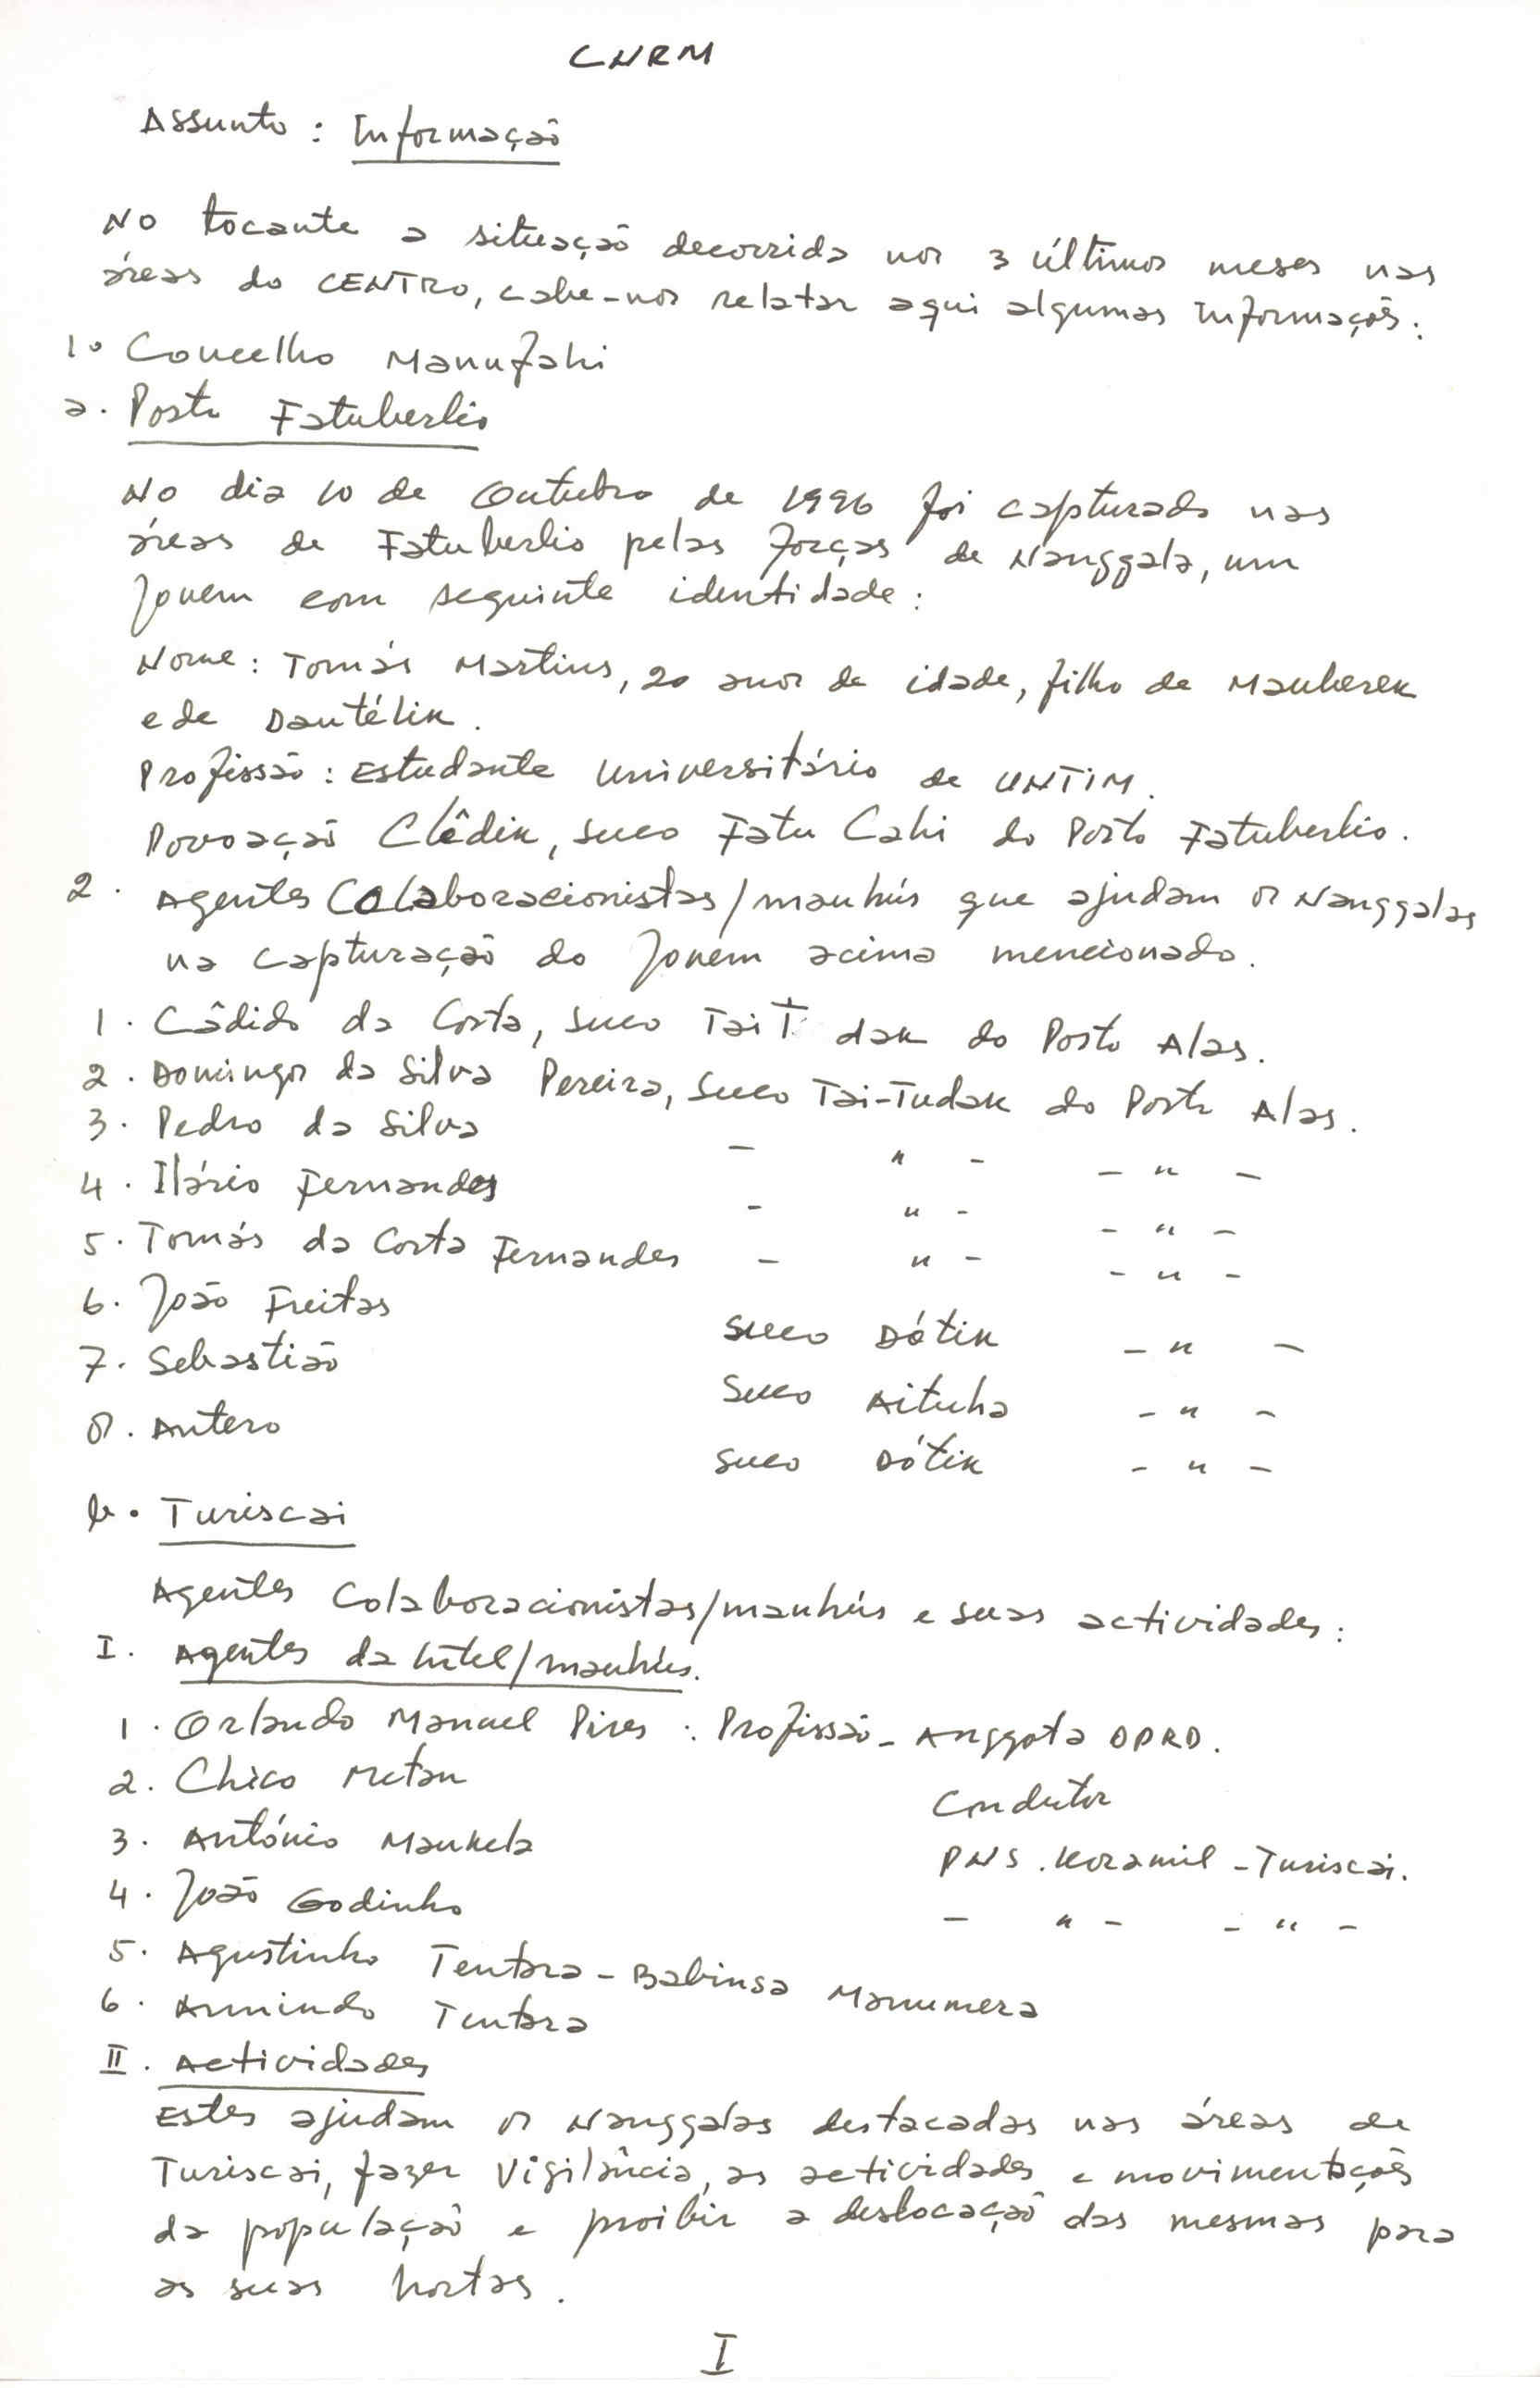 CNRM
Assunto : Informação
No tocante a situação decorrida nos 3 últimos meses nas
áreas do CENTRO, cabe-nos relatar aqui algumas informações :
1º Concelho Manufahi
a. Posto Fatuberlio
No dia 10 de Outubro de 1996 foi capturado nas
áreas de Fatuberlio pelas forças de Nanggala, um
Jovem com seguinte identidade :
Nome : Tomás Martins, 20 anos de idade, filho de Mauberek
e de Dautélik.
Profissão : Estudante Universitário de UNTIM.
Povoação Clêdik, suco Fatu Cahi do Posto Fatuberlio.
2. Agentes Colaboracionistas/mauhús que ajudam os Nanggalas
na capturação do Jovem acima mencionado.
1. Câdido da Costa, suco Tai T dak do Posto Alas.
2. Domingos da Silva Pereira, suco Tai-Tudak do Posto Alas.
3. Pedro da Silva - " - - " -
4. Ilário Fernandes - " - - " -
5. Tomás da Costa Fernandes - " - - " -
6. João Freitas suco Dótik - " -
7. Sebastião suco Aituha - " -
8. Antero suco Dótik - " -
b. Turiscai
Agentes Colaboracionistas/mauhús e suas actividades :
I. Agentes da Intel/mauhús.
1. Orlando Manuel Pires : Profissão - Anggota DPRD.
2. Chico Metan Condutor
3. António Maukela PNS. Koramil - Turiscai.
4. João Godinho - " - - " -
5. Agustinho Tentara - Babinsa Manumera
6. Armindo Tentara
II. Actividades
Estes ajudam os Nanggalas destacadas nas áreas de
Turiscai, fazer Vigilância, as actividades e movimentações
da população e proibir a deslocação das mesmas para
as suas hortas.
I